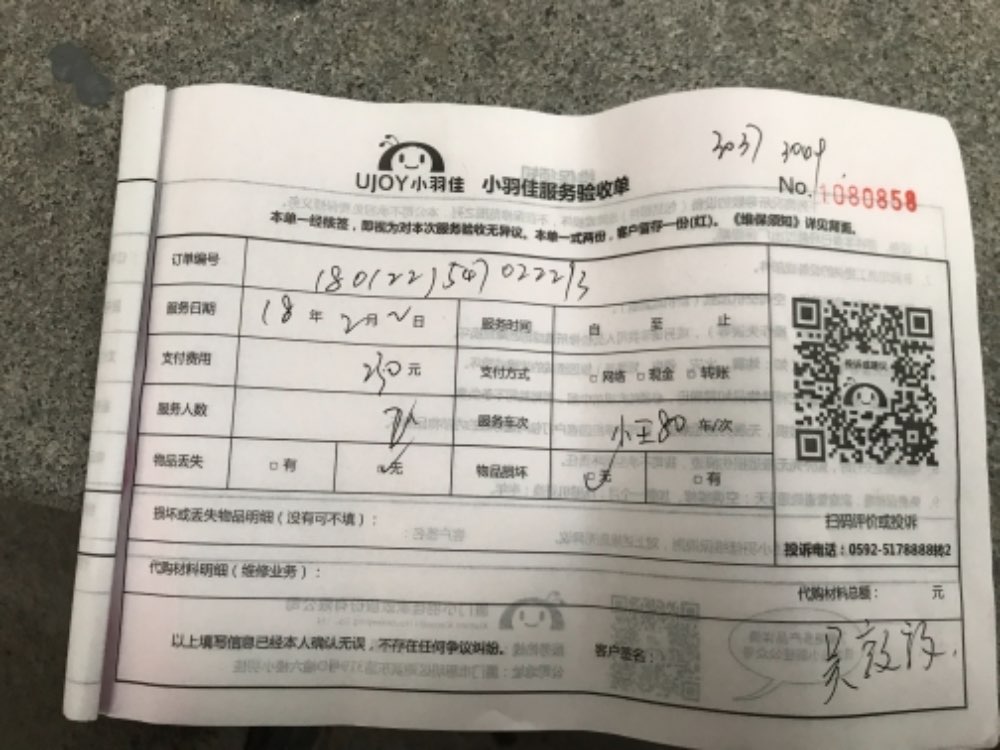 3037 3009
UJOY小羽佳 小羽佳服务验收单
No. 1080858
本单一经核签，即视为对本次服务验收无异议。本单一式两份，客户留存一份(红)。《维保须知》详见背面。
订单编号
服务日期 18 年 2月 日 服务时间 自 至 止
支付费用 230元 支付方式 □网络 □现金 □转账
服务人数 服务车次 小王80 车/次
物品丢失 □有 □无 物品损坏 □无 □有
投诉或建议
扫码评价或投诉
投诉电话：0592-5178888转2
损坏或丢失物品明细（没有可不填）：
代购材料明细（维修业务）：
代购材料总额： 元
以上填写信息已经本人确认无误，不存在任何争议纠纷。 客户签名：